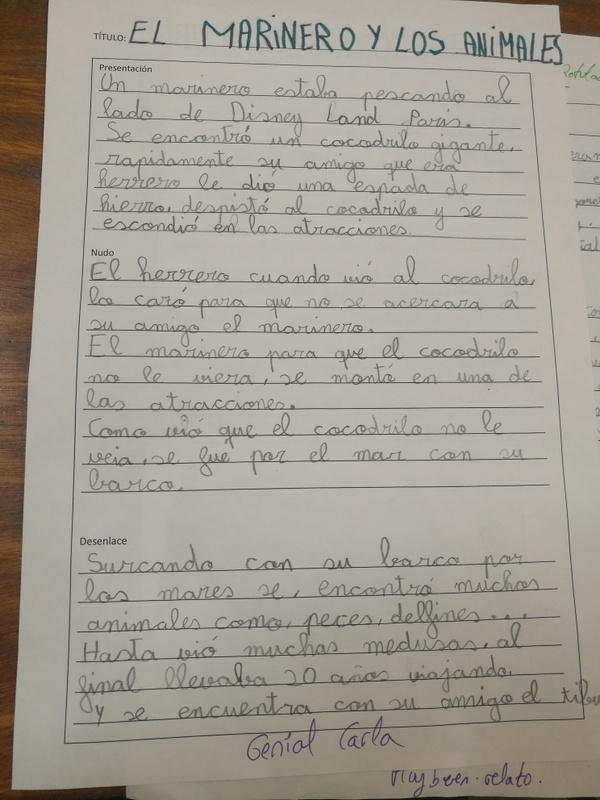 TÍTULO: EL MARINERO Y LOS ANIMALES
Presentación
Un marinero estaba pescando al
lado de Disney Land París.
Se encontró un cocodrilo gigante,
rapidamente su amigo que era
herrero le dió una espada de
hierro, despistó al cocodrilo y se
escondió en las atracciones.
Nudo
El herrero cuando vió al cocodrilo,
lo para que no se acercara a
su amigo el marinero.
El marinero para que el cocodrilo
no le viera, se montó en una de
las atracciones.
Como vió que el cocodrilo no le
veia, se fué por el mar con su
barco.
Desenlace
Surcando con su barco por
los mares se, encontró muchos
animales como, peces, delfines...
Hasta vió muchas medusas, al
final llevaba 20 años viajando,
y se encuentra con su amigo el
Genial Carla
Muy buen relato.